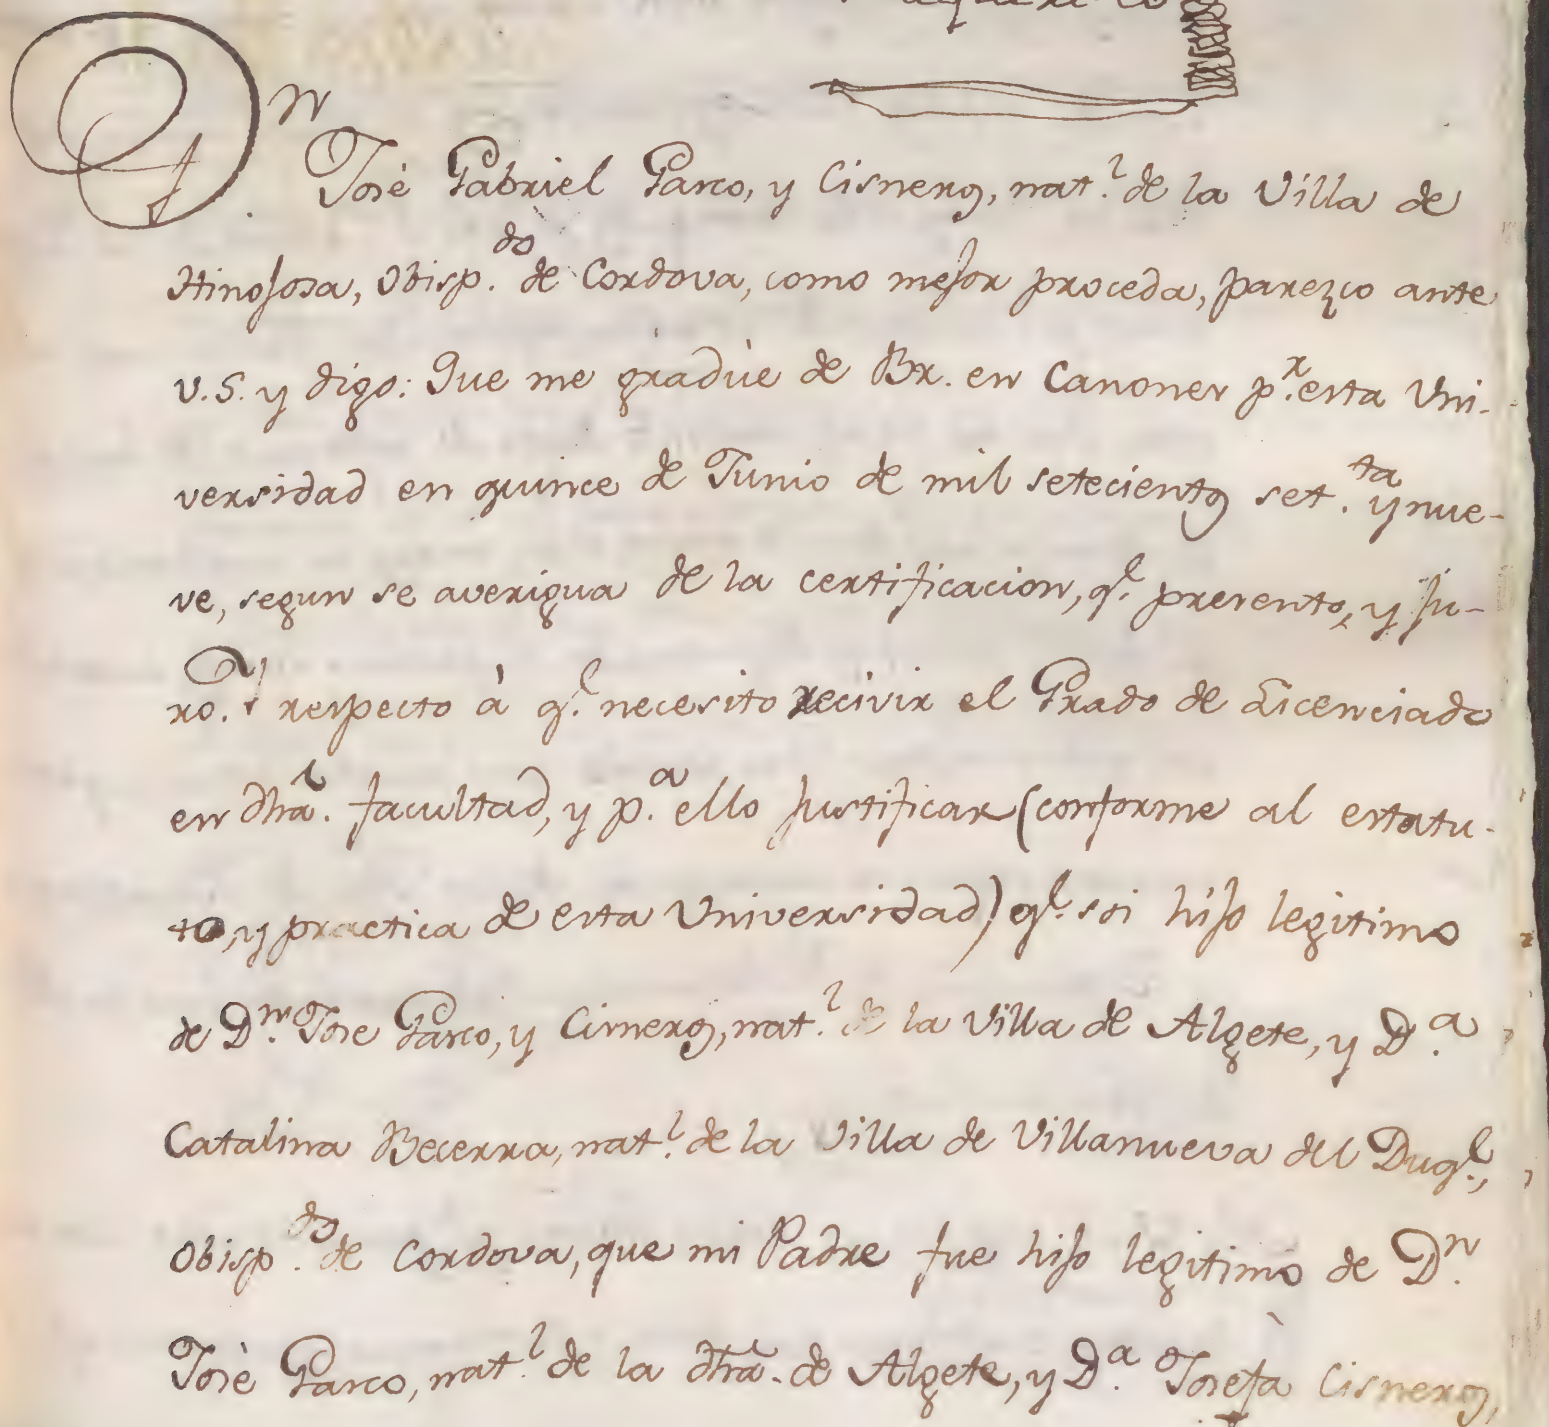 Dn. Josè Gabriel Garco, y Cisneros, nat.l de la Villa de
Hinojosa, Obisp.do de Cordova, como mejor proceda, parezco ante
V.S. y digo: Que me gradùe de Br. en Canones p.r esta Uni-
versidad en quince de Junio de mil setecientos set.ta y nue-
ve, segun se averigua de la certificacion, q.e presento, y ju-
ro. Y respecto à q.e necesito recivir el Grado de Licenciado
en dha. facultad, y p.a ello justificar (conforme al estatu-
to, y practica de esta Universidad) q.e soi hijo legitimo
de Dn. Jose Garco, y Cisneros, nat.l de la Villa de Algete, y D.a
Catalina Becerra, nat.l de la Villa de Villanueva del Duq.e,
Obisp.do de Cordova, que mi Padre fue hijo legitimo de Dn.
Josè Garco, nat.l de la dha. de Algete, y D.a Josefa Cisneros,